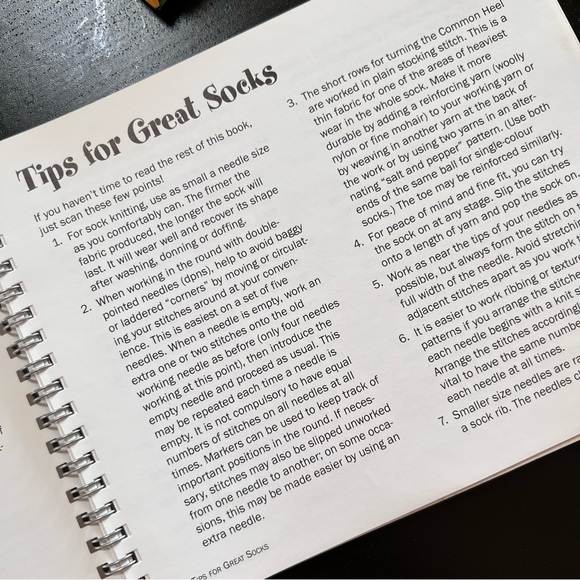 Tips for Great Socks
If you haven't time to read the rest of this book,
just scan these few points!
1. For sock knitting, use as small a needle size
as you comfortably can. The firmer the
fabric produced, the longer the sock will
last. It will wear well and recover its shape
after washing, donning or doffing.
2. When working in the round with double-
pointed needles (dpns), help to avoid baggy
or laddered "corners" by moving or circulat-
ing your stitches around at your conven-
ience. This is easiest on a set of five
needles. When a needle is empty, work an
extra one or two stitches onto the old
working needle as before (only four needles
working at this point), then introduce the
empty needle and proceed as usual. This
may be repeated each time a needle is
empty. It is not compulsory to have equal
numbers of stitches on all needles at all
times. Markers can be used to keep track of
important positions in the round. If neces-
sary, stitches may also be slipped unworked
from one needle to another; on some occa-
sions, this may be made easier by using an
extra needle.
3. The short rows for turning the Common Heel
are worked in plain stocking stitch. This is a
thin fabric for one of the areas of heaviest
wear in the whole sock. Make it more
durable by adding a reinforcing yarn (woolly
nylon or fine mohair) to your working yarn or
by weaving in another yarn at the back of
the work or by using two yarns in an alter-
nating "salt and pepper" pattern. (Use both
ends of the same ball for single-colour
socks.) The toe may be reinforced similarly.
4. For peace of mind and fine fit, you can try
the sock on at any stage. Slip the stitches
onto a length of yarn and pop the sock on.
5. Work as near the tips of your needles as
possible, but always form the stitch on
full width of the needle. Avoid stretching
adjacent stitches apart as you work
6. It is easier to work ribbing or
patterns if you arrange the
each needle begins with a knit
Arrange the stitches
vital to have the same
each needle at all times.
7. Smaller size needles are
a sock rib. The needles
TIPS FOR GREAT SOCKS